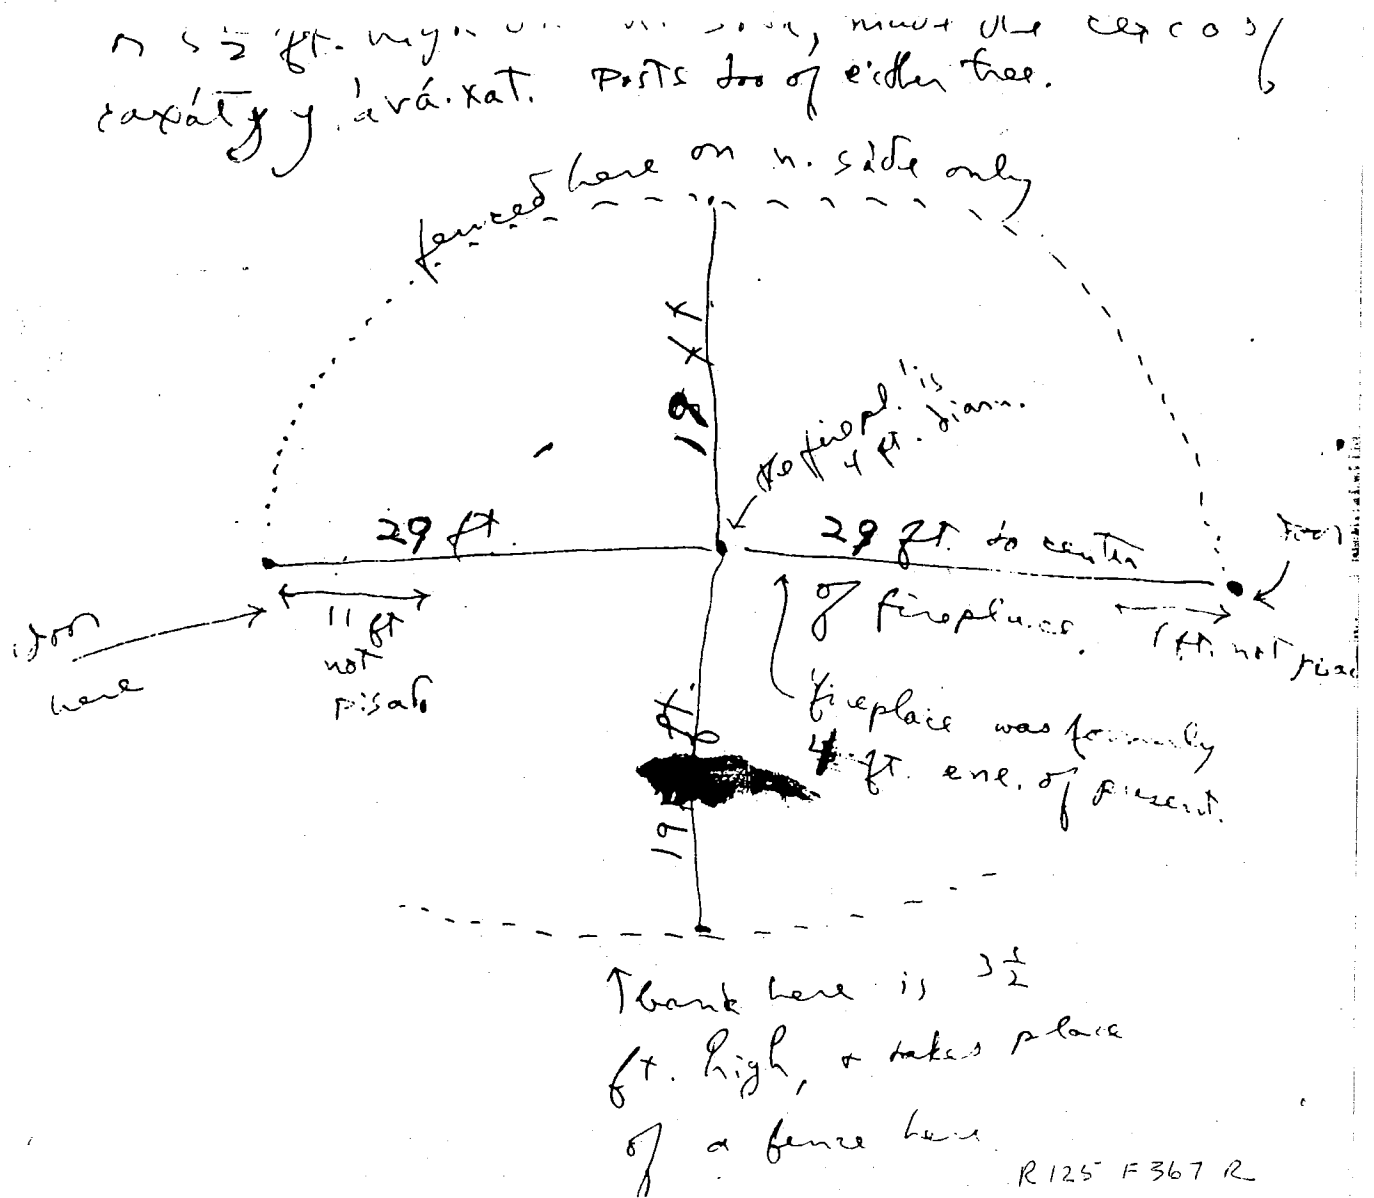 ft.
posts too of either tree.
fenced here on n. side only
18 ft
the firepl. is
4 ft. diam.
29 ft.
29 ft. to center
of fireplace.
door
door
here
11 ft
not
pisado
11 ft. not
ft.
19
fireplace was formerly
4 ft. ene. of present.
bank here is 3 1/2
ft. high, & takes place
of a fence here
R125 F367 R